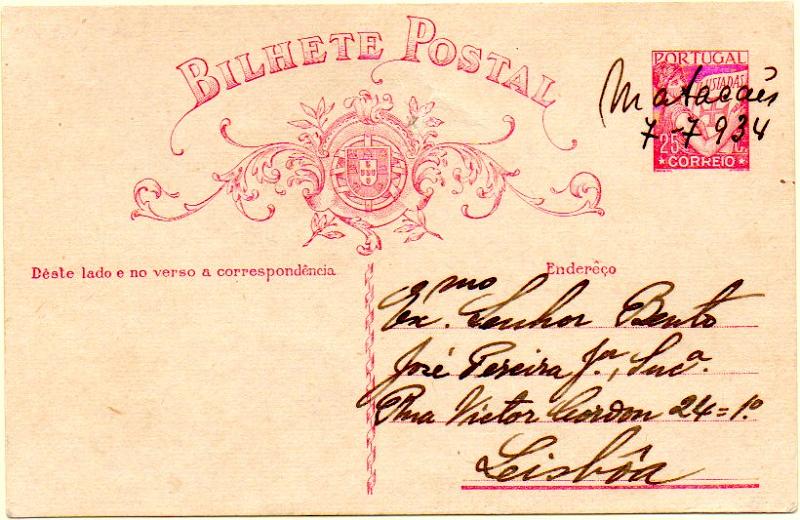 BILHETE POSTAL
PORTUGAL
LUSIADAS
Matacães
7-7934
25 C.
CORREIO
Dêste lado e no verso a correspondência
Enderêço
Ex.mo Senhor Bento
José Pereira J.or, Suc.a
Rua Victor Cordon 24=1.º
Lisbôa